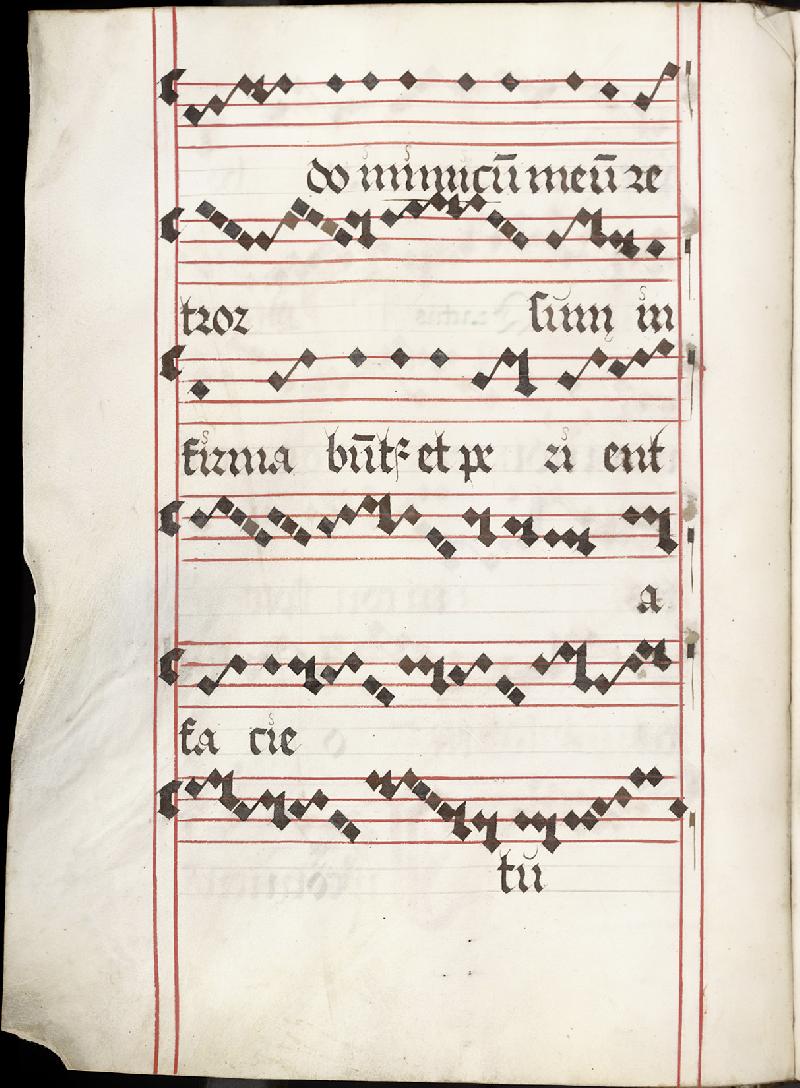 do inimicū meū re
tror sum in
firma būt᷒ et pe ri ent
a
fa cie
tu